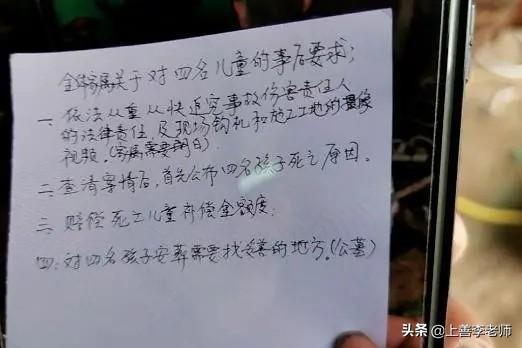 全体家属关于对四名儿童的事后要求;
一、依法从重从快追究事故伤害责任人
的法律责任.及现场钩机和施工工地的摄像
视频。(家属需要明白).
二、查清案情后,首先公布四名孩子死亡原因。
三、赔偿死亡儿童补偿金额度.
四:对四名孩子安葬需要找妥善的地方.(公墓)
头条 @上善李老师